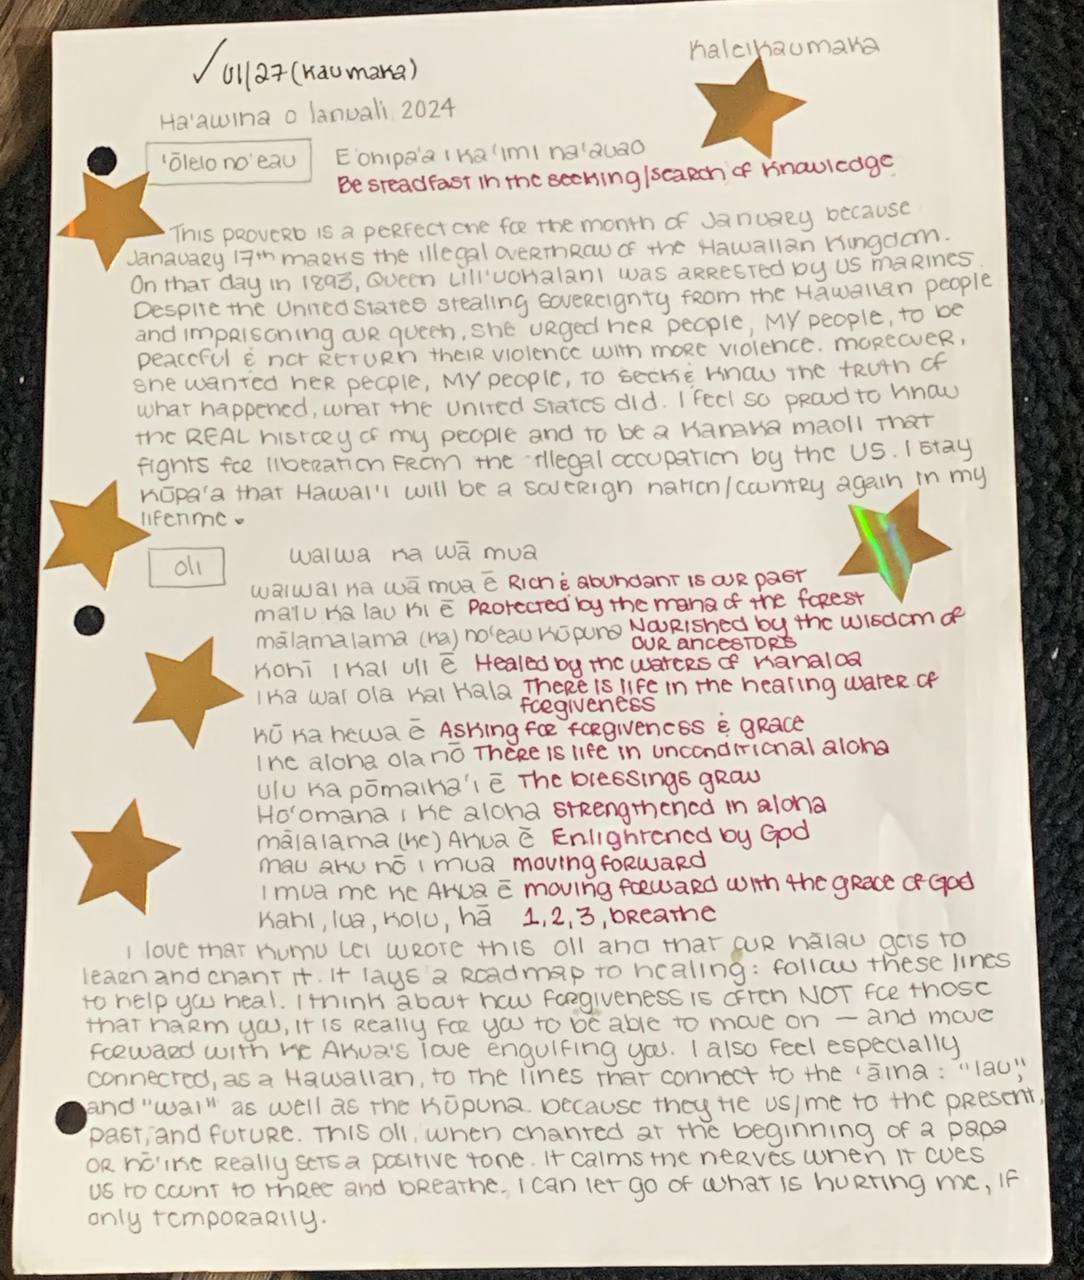 ✓ 01/27 (Kaumaka)
Kaleikaumaka
Ha'awina o Ianuali 2024
'ōlelo no'eau
E 'onipa'a i ka 'imi na'auao
Be steadfast in the seeking/search of knowledge
This proverb is a perfect one for the month of January because
Janauary 17th marks the illegal overthrow of the Hawaiian Kingdom.
On that day in 1893, Queen Lili'uokalani was arrested by US marines.
Despite the United States stealing sovereignty from the Hawaiian people
and imprisoning our queen, she urged her people, MY people, to be
peaceful & not return their violence with more violence. Moreover,
she wanted her people, MY people, to seek & know the truth of
what happened, what the United States did. I feel so proud to know
the REAL history of my people and to be a Kanaka maoli that
fights for liberation from the illegal occupation by the US. I stay
kūpa'a that Hawai'i will be a soverign nation/country again in my
lifetime.
oli
Waiwa ka wā mua
waiwai ka wā mua ē Rich & abundant is our past
malu ka lau ki ē Protected by the mana of the forest
mālamalama (ka) no'eau kūpuna Nourished by the wisdom of
our ancestors
Kohī i kai uli ē Healed by the waters of Kanaloa
I ka wai ola kai kala There is life in the healing water of
forgiveness
Kū ka hewa ē Asking for forgiveness & grace
I ke aloha ola nō There is life in unconditional aloha
Ulu ka pōmaika'i ē The blessings grow
Ho'omana i ke aloha strengthened in aloha
mālalama (ke) Akua ē Enlightened by God
mau aku nō i mua moving forward
I mua me ke Akua ē moving forward with the grace of God
Kahi, lua, kolu, hā 1, 2, 3, breathe
I love that Kumu Lei wrote this oli and that our hālau gets to
learn and chant it. It lays a roadmap to healing: follow these lines
to help you heal. I think about how forgiveness is often NOT for those
that harm you, it is really for you to be able to move on — and move
forward with ke Akua's love engulfing you. I also feel especially
connected, as a Hawaiian, to the lines that connect to the 'āina: "lau",
and "wai" as well as the kūpuna because they tie us/me to the present,
past, and future. This oli, when chanted at the beginning of a papa
or hō'ike really sets a positive tone. It calms the nerves when it cues
us to count to three and breathe. I can let go of what is hurting me, if
only temporarily.